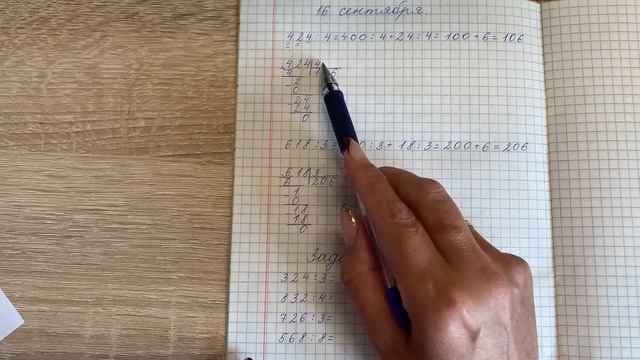 16 сентября.
424:4=400:4+24:4=100+6=106
424 4
4 1 6
2
0
24
24
0
618:3= 0:3+18:3=200+6=206
618 3
6 206
1
0
18
18
0
324:3=
832:4=
726:3=
568:8=